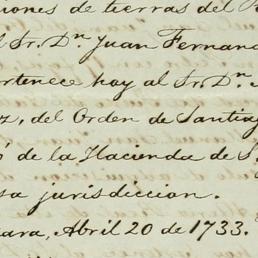 iones de tierras del
l Sr. Dn. Juan Fernan
ertenece hoy al Sr. Dn.
z, del Orden de Santia
ó de la Hacienda de S.
sa jurisdiccion.
ara, Abril 20 de 1733.